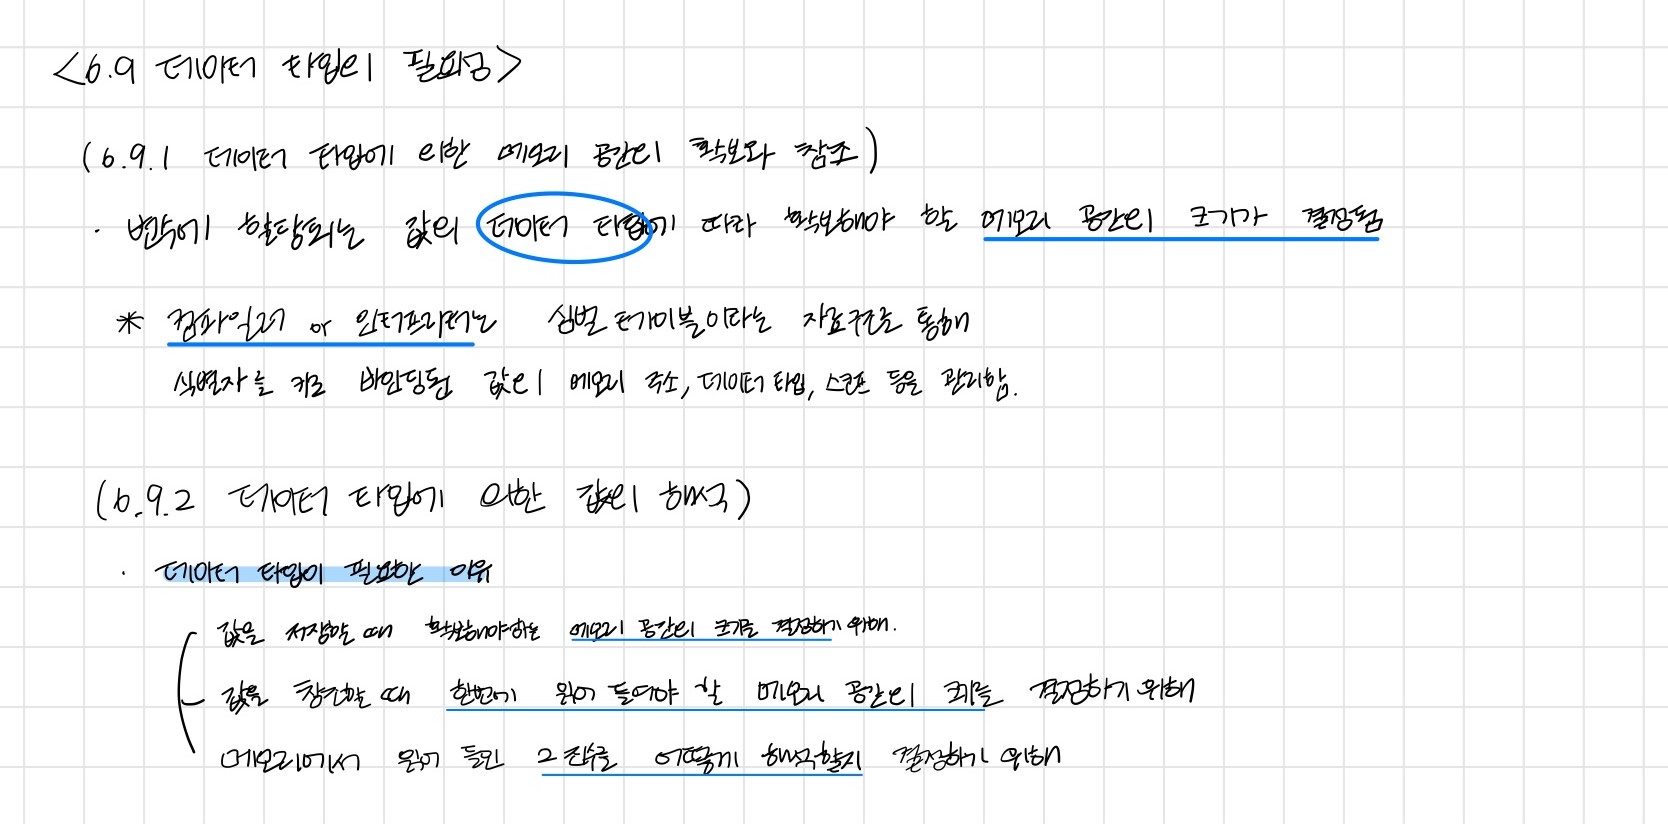 <6.9 데이터 타입의 필요성>
(6.9.1 데이터 타입에 의한 메모리 공간의 확보와 참조)
· 변수에 할당되는 값의 데이터 타입에 따라 확보해야 할 메모리 공간의 크기가 결정됨
* 컴파일러 or 인터프리터는 심벌 테이블이라는 자료구조를 통해
식별자를 키로 바인딩된 값의 메모리 주소, 데이터 타입, 스코프 등을 관리함.
(6.9.2 데이터 타입에 의한 값의 해석)
· 데이터 타입이 필요한 이유
값을 저장할 때 확보해야하는 메모리 공간의 크기를 결정하기 위해.
값을 참조할 때 한번에 읽어 들여야 할 메모리 공간의 크기를 결정하기 위해
메모리에서 읽어 들인 2진수를 어떻게 해석할지 결정하기 위해